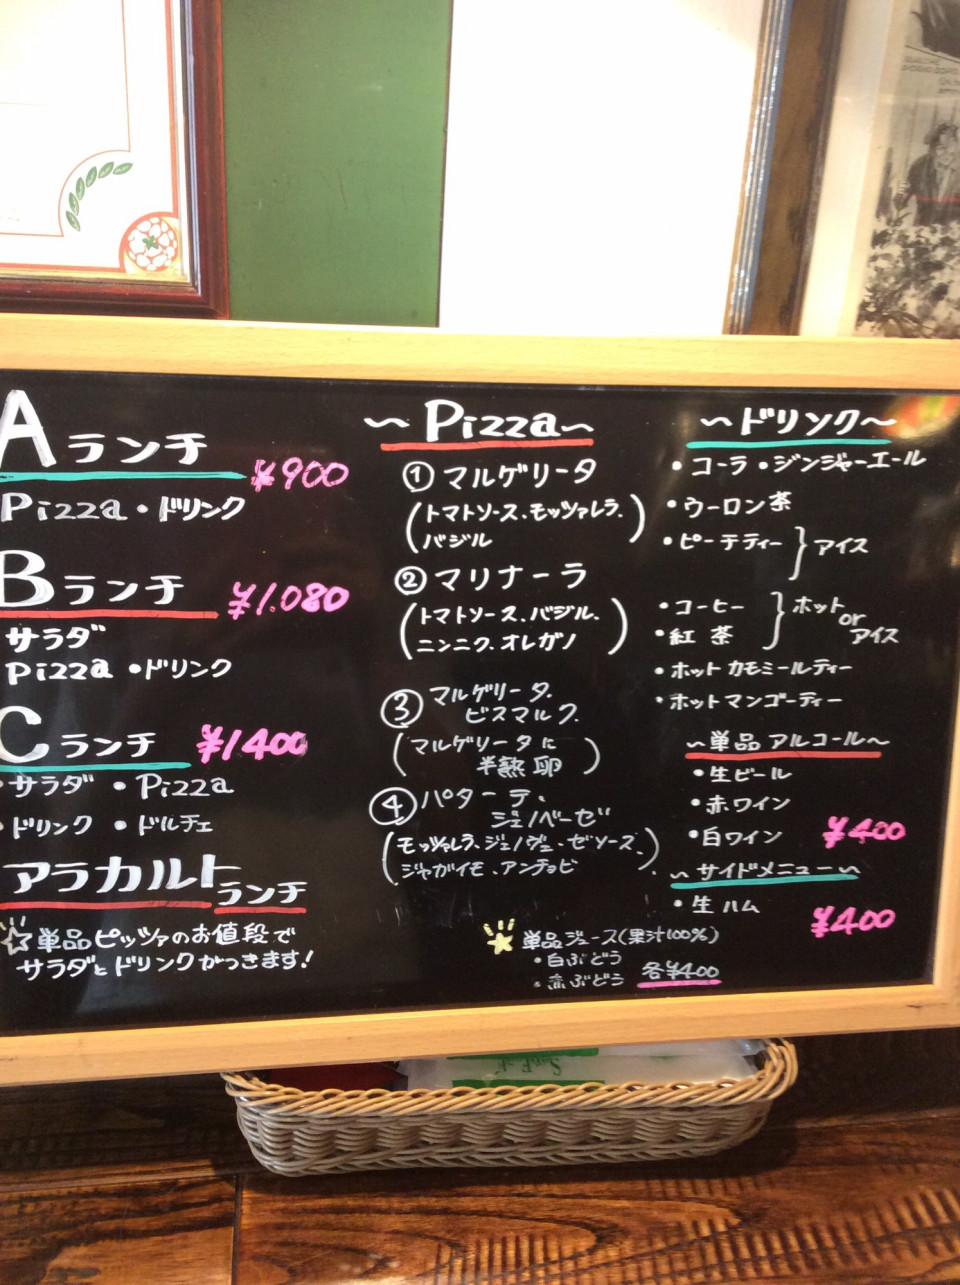 Aランチ ¥900
Pizza・ドリンク
Bランチ ¥1.080
サラダ
Pizza・ドリンク
Cランチ ¥1400
・サラダ ・Pizza
・ドリンク ・ドルチェ
アラカルトランチ
☆単品ピッツァのお値段で
サラダとドリンクがつきます!
〜Pizza〜
①マルゲリータ
(トマトソース、モッツァレラ、
バジル)
②マリナーラ
(トマトソース、バジル、
ニンニク、オレガノ)
③マルゲリータ、
ビスマルク、
(マルゲリータに
半熟卵)
④パターテ、
ジェノベーゼ
(モッツァレラ、ジェノヴェーゼソース、
ジャガイモ、アンチョビ)
★単品ジュース(果汁100%)
・白ぶどう
・赤ぶどう 各¥400
〜ドリンク〜
・コーラ ・ジンジャーエール
・ウーロン茶
・ピーチティー }アイス
・コーヒー
・紅茶 }ホット or アイス
・ホットカモミールティー
・ホットマンゴーティー
〜単品アルコール〜
・生ビール
・赤ワイン
・白ワイン ¥400
〜サイドメニュー〜
・生ハム ¥400